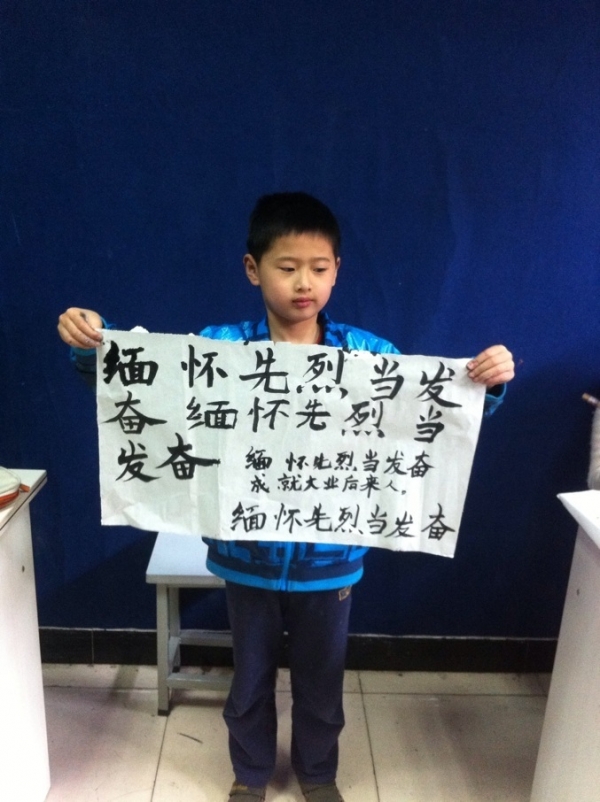 缅怀先烈当发
奋缅怀先烈当
发奋
缅怀先烈当发奋
成就大业后来人。
缅怀先烈当发奋